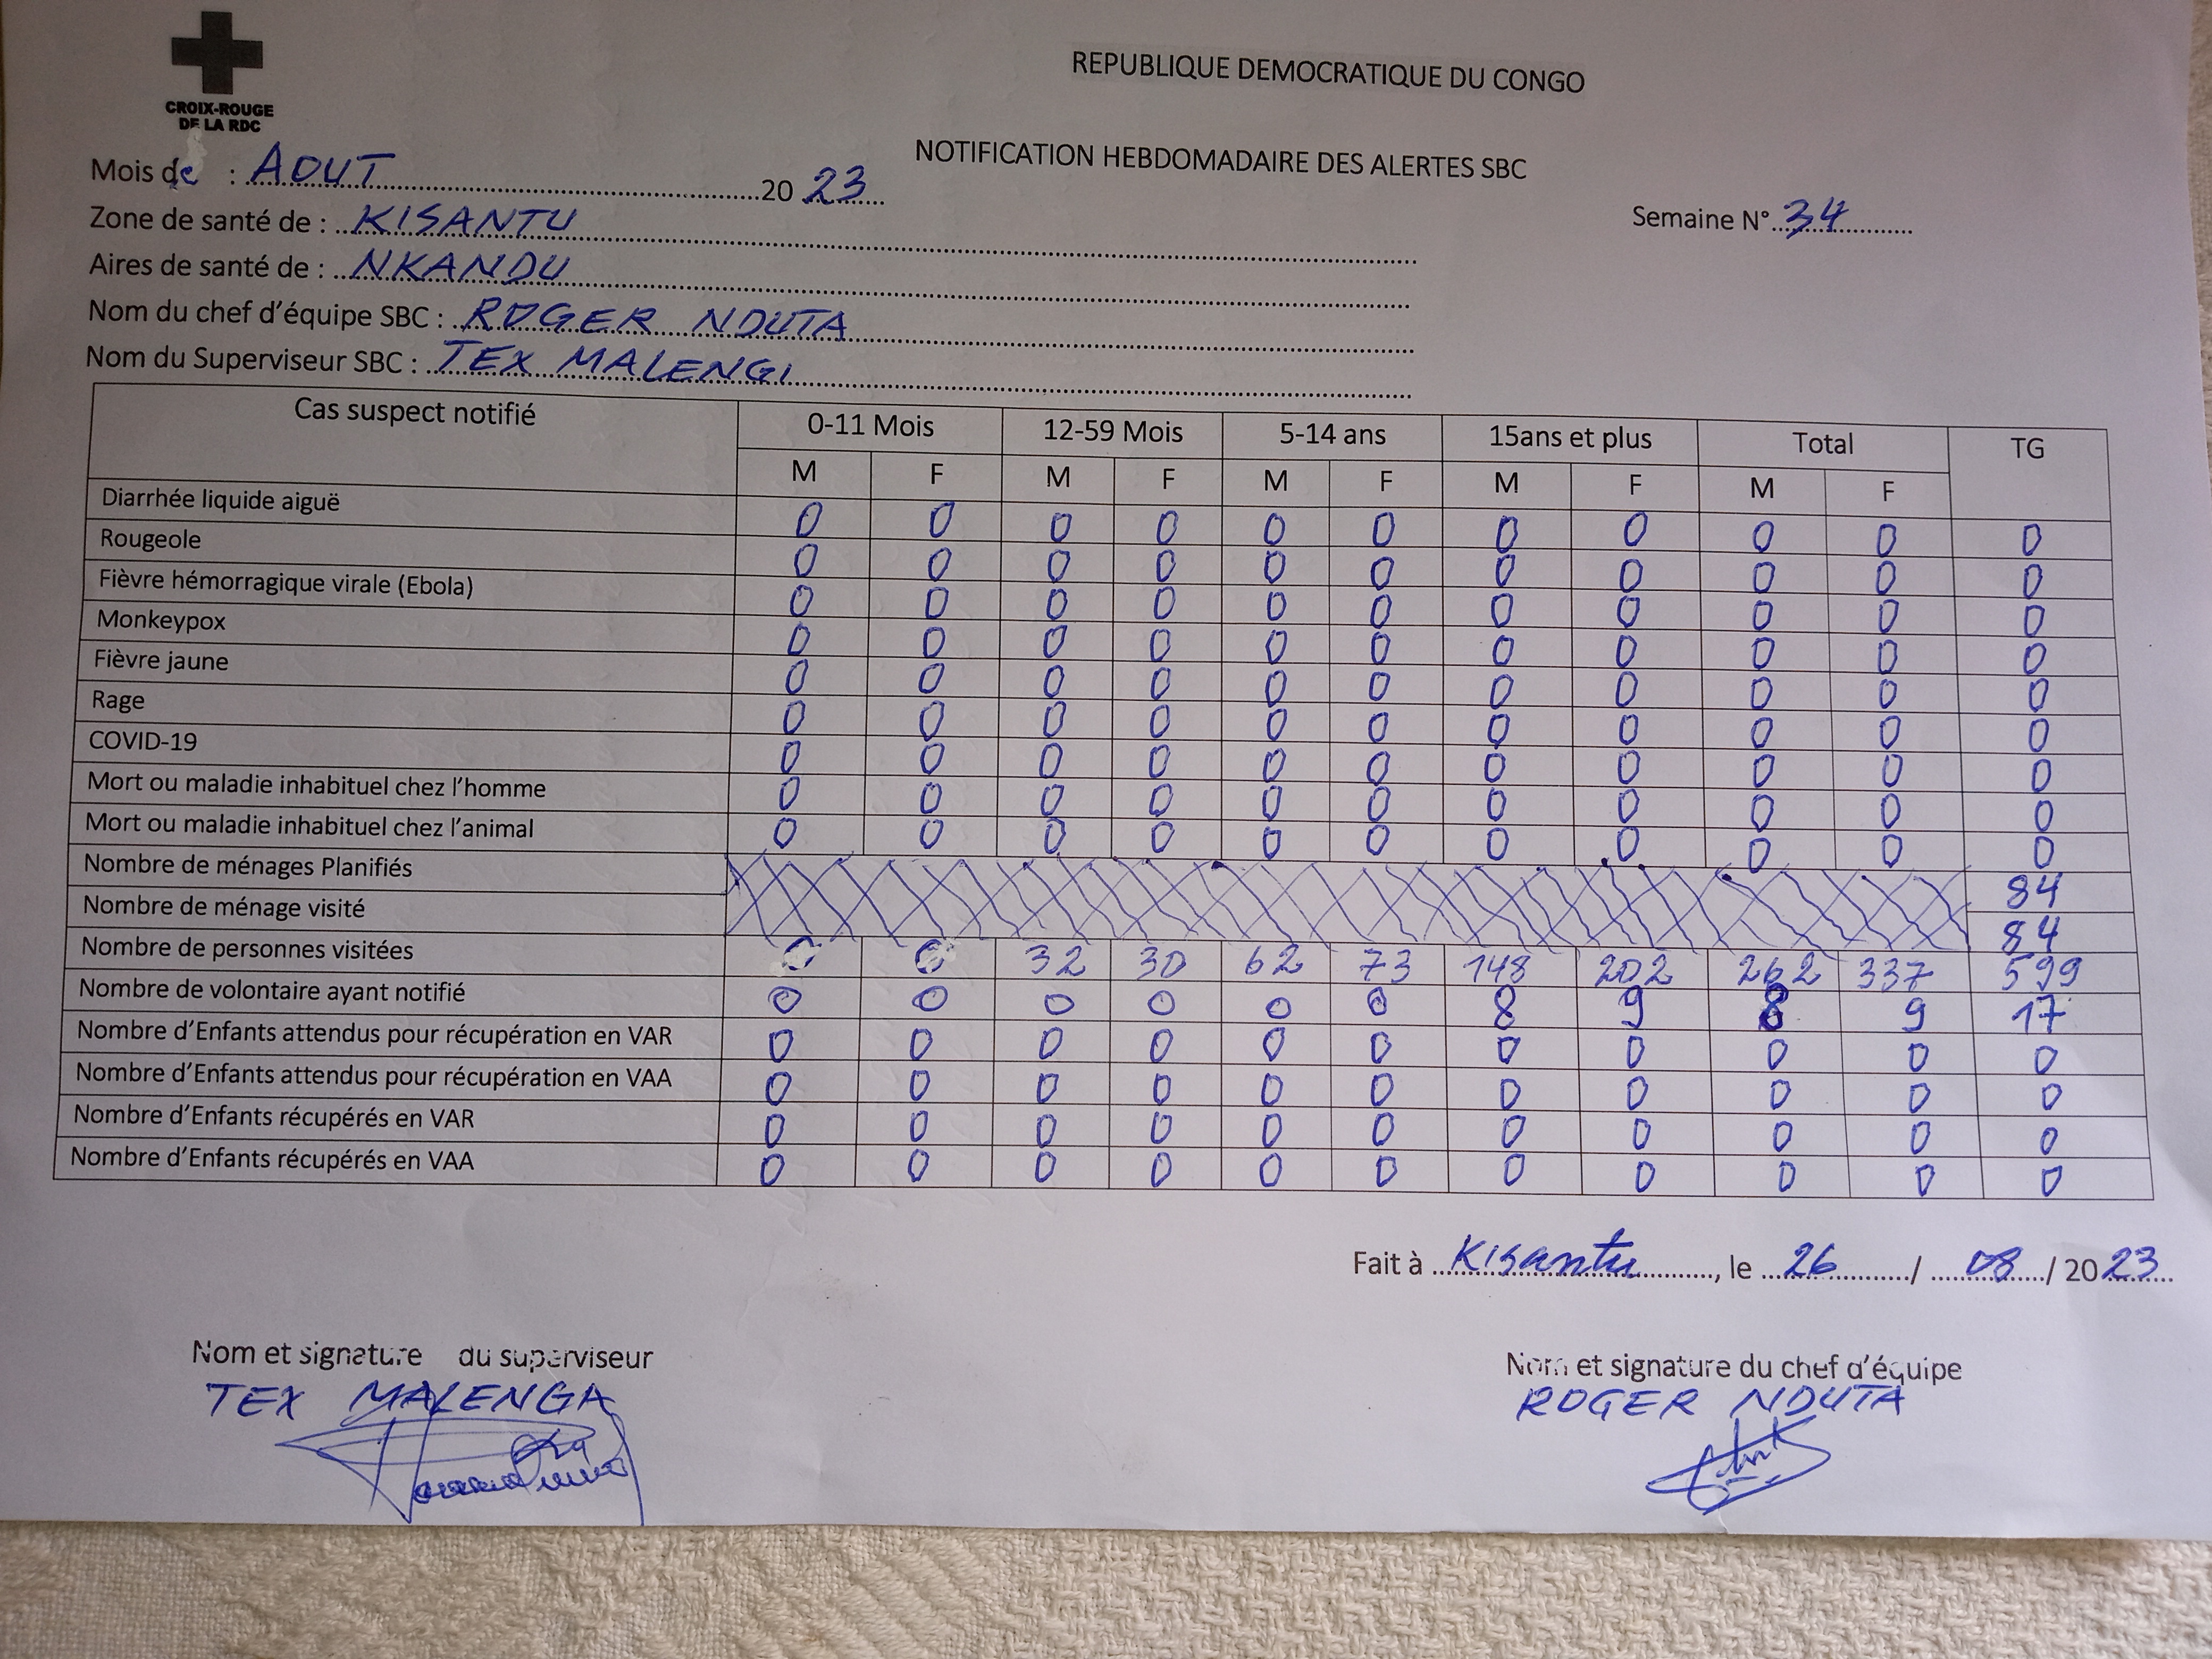 CROIX-ROUGE
DE LA RDC
REPUBLIQUE DEMOCRATIQUE DU CONGO
NOTIFICATION HEBDOMADAIRE DES ALERTES SBC
Mois de : AOUT 20 23
Semaine N° 34
Zone de santé de : KISANTU
Aires de santé de : NKANDU
Nom du chef d'équipe SBC : ROGER NDUTA
Nom du Superviseur SBC : TEX MALENGI
Cas suspect notifié 0-11 Mois 12-59 Mois 5-14 ans 15ans et plus Total TG
M F M F M F M F M F
Diarrhée liquide aiguë 0 0 0 0 0 0 0 0 0 0 0
Rougeole 0 0 0 0 0 0 0 0 0 0 0
Fièvre hémorragique virale (Ebola) 0 0 0 0 0 0 0 0 0 0 0
Monkeypox 0 0 0 0 0 0 0 0 0 0 0
Fièvre jaune 0 0 0 0 0 0 0 0 0 0 0
Rage 0 0 0 0 0 0 0 0 0 0 0
COVID-19 0 0 0 0 0 0 0 0 0 0 0
Mort ou maladie inhabituel chez l'homme 0 0 0 0 0 0 0 0 0 0 0
Mort ou maladie inhabituel chez l'animal 0 0 0 0 0 0 0 0 0 0 0
Nombre de ménages Planifiés 84
Nombre de ménage visité 84
Nombre de personnes visitées 32 30 62 73 148 202 262 337 599
Nombre de volontaire ayant notifié 0 0 0 0 0 0 8 9 8 9 17
Nombre d'Enfants attendus pour récupération en VAR 0 0 0 0 0 0 0 0 0 0 0
Nombre d'Enfants attendus pour récupération en VAA 0 0 0 0 0 0 0 0 0 0 0
Nombre d'Enfants récupérés en VAR 0 0 0 0 0 0 0 0 0 0 0
Nombre d'Enfants récupérés en VAA 0 0 0 0 0 0 0 0 0 0 0
Fait à Kisantu, le 26 / 08 / 20 23
Nom et signature du superviseur
TEX MALENGA
Nom et signature du chef d'équipe
ROGER NDUTA